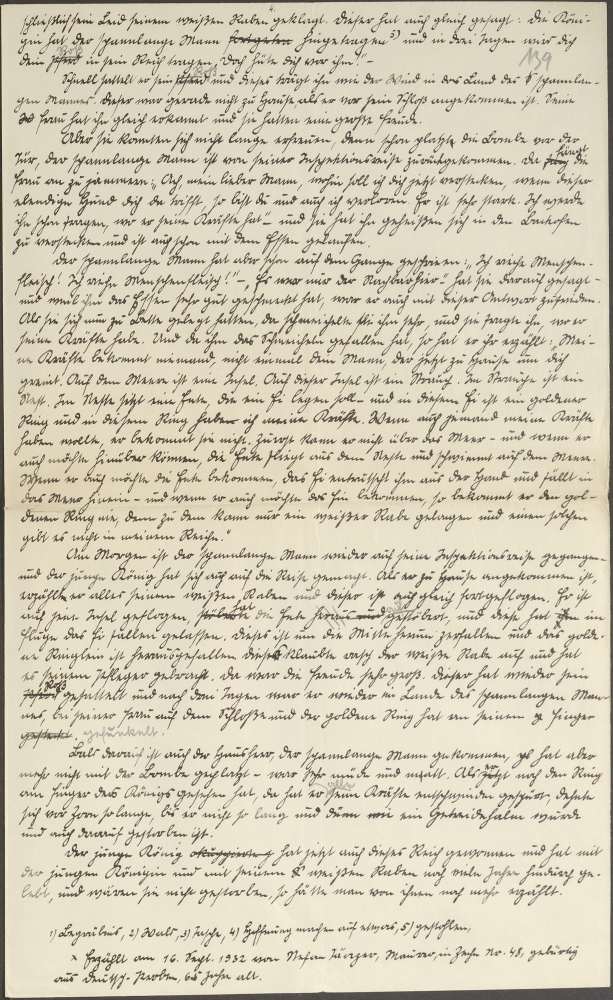 schließlich sein Leid seinem weißen Raben geklagt. Dieser hat auch gleich gesagt: Die Köni-
gin hat der spannlange Mann fortgetra hingetragen 5) und in drei Tagen wird dich
dein Pferd in sein Reich tragen, doch hüte dich vor ihm! –
139
Schnell sattelt er sein Pferd und dieses trägt ihn wie der Wind in das Land des spannlan-
gen Mannes. Dieser war gerade nicht zu Hause als er vor sein Schloß angekommen ist. Seine
Frau hat ihn gleich erkannt und sie hatten eine große Freude.
Aber sie konnten sich nicht lange erfreuen, denn schon platzte die Bombe vor der
Tür, der spannlange Mann ist von seiner Inspektionsreise zurückgekommen. Da fängt die
Frau an zu jammern: „Ach, mein lieber Mann, wohin soll ich dich jetzt verstecken, wenn dieser
elendige Hund dich da trifft, so bist du und auch ich verloren. Er ist sehr stark. Ich werde
ihn schon fragen, wo er seine Kräfte hat" – und sie hat ihn geheißen sich in den Backofen
zu verstecken und ist auch schon mit dem Essen gelaufen.
Der spannlange Mann hat aber schon auf dem Gange geschrien: „Ich rieche Menschen-
fleisch! Ich rieche Menschenfleisch!" –, „Es war nur der Nachbar hier" hat sie darauf gesagt –
und weil ihm das Essen sehr gut geschmeckt hat, war er auch mit dieser Antwort zufrieden.
Als sie sich nun zu Bette gelegt hatten, da schmeichelte sie ihm sehr, und sie fragte ihn, wo er
seine Kräfte habe. Und da ihm das Schmeicheln gefallen hat, so hat er ihr erzählt: „Mei-
ne Kräfte bekommt niemand, nicht einmal dem Mann, der jetzt zu Hause um dich
greint. Auf dem Meere ist eine Insel. Auf dieser Insel ist ein Strauch. Im Strauche ist ein
Nest. Im Neste sitzt eine Ente, die ein Ei legen soll – und in diesem Ei ist ein goldener
Ring und in diesem Ring haben ich meine Kräfte. Wenn auch jemand meine Kräfte
haben wollte, er bekommt sie nicht. Zuerst kann er nicht über das Meer – und wenn er
auch möchte hinüber können, die Ente fliegt aus dem Neste und schwimmt auf dem Meere.
Wenn er auch möchte die Ente bekommen, das Ei entrutscht ihm aus der Hand und fällt in
das Meer hinein – und wenn er auch möchte das Ei bekommen, so bekommt er den gol-
denen Ring nie, denn zu dem kann nur ein weißer Rabe gelangen und einen solchen
gibt es nicht in meinem Reiche."
Am Morgen ist der spannlange Mann wieder auf seine Inspektionsreise gegangen –
und der junge König hat sich auch auf die Reise gemacht. Als er zu Hause angekommen ist,
erzählte er alles seinem weißen Raben und dieser ist auch gleich fortgeflogen. Er ist
auf jene Insel geflogen, hat die Ente heraus und gestöbert, und diese hat im
Fluge das Ei fallen gelassen. Dieses ist um die Mitte herum zerfallen und das golde-
ne Ringlein ist herausgefallen. Dieses klaubte rasch der weiße Rabe auf und hat
es seinem Pfleger gebracht. Da war die Freude sehr groß. Dieser hat wieder sein
gesattelt und nach drei Tagen war er wieder im Lande des spannlangen Man-
nes, bei seiner Frau auf dem Schlosse und der goldene Ring hat an seinem Finger
gesteckt. gefunkelt.
Bald darauf ist auch der Hausherr, der spannlange Mann gekommen, es hat aber
mehr nicht mit der Bombe geplatzt – war sehr müde und matt. Als er jetzt noch den Ring
am Finger des Königs gesehen hat, da hat er seine Kräfte entschwinden gespürt, dehnte
sich vor Zorn so lange, bis er nicht so lang und dünn wie ein Getreidehalm wurde
und auch darauf gestorben ist.
Der junge König hat jetzt auch dieses Reich gewonnen und hat mit
der jungen Königin und mit seinem weißen Raben noch viele Jahre hindurch ge-
lebt, und wären sie nicht gestorben, so hätte man von ihnen noch mehr erzählt.
1) Begräbnis, 2) Wald, 3) Tasche, 4) Hoffnung machen auf etwas, 5) gestohlen,
× Erzählt am 16. Sept. 1932 von Stefan Jäger, Maurer, in Zeche Nr. 48, gebürtig
aus Deutsch-Proben, 65 Jahre alt.